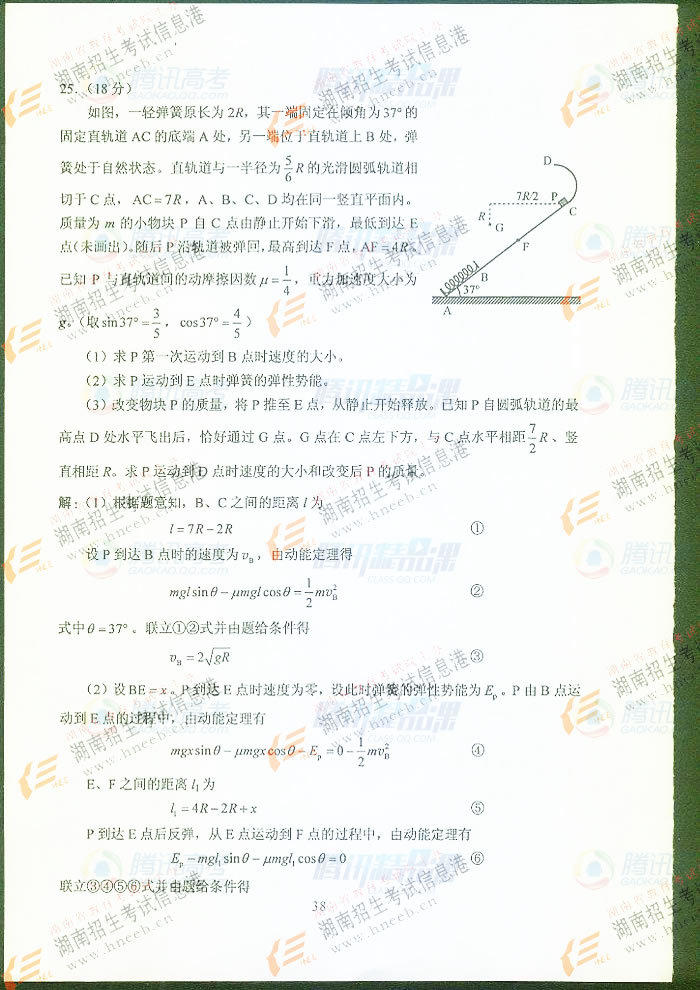 25.（18 分）
如图，一轻弹簧原长为 2R，其一端固定在倾角为 37° 的
固定直轨道 AC 的底端 A 处，另一端位于直轨道上 B 处，弹
簧处于自然状态。直轨道与一半径为 5/6 R 的光滑圆弧轨道相
切于 C 点，AC=7R，A、B、C、D 均在同一竖直平面内。
质量为 m 的小物块 P 自 C 点由静止开始下滑，最低到达 E
点(未画出)。随后 P 沿轨道被弹回，最高到达 F 点，AF=4R。
已知 P 与直轨道间的动摩擦因数 μ=1/4，重力加速度大小为
g。（取 sin37°=3/5，cos37°=4/5）
D
7R/2
P
C
R
G
F
B
37°
A
（1）求 P 第一次运动到 B 点时速度的大小。
（2）求 P 运动到 E 点时弹簧的弹性势能。
（3）改变物块 P 的质量，将 P 推至 E 点，从静止开始释放。已知 P 自圆弧轨道的最
高点 D 处水平飞出后，恰好通过 G 点。G 点在 C 点左下方，与 C 点水平相距 7/2 R、竖
直相距 R。求 P 运动到 D 点时速度的大小和改变后 P 的质量。
解：（1）根据题意知，B、C 之间的距离 l 为
l=7R−2R ①
设 P 到达 B 点时的速度为 v_B，由动能定理得
mgl sinθ − μmgl cosθ = 1/2 mv_B² ②
式中 θ=37°。联立①②式并由题给条件得
v_B = 2√gR ③
（2）设 BE=x。P 到达 E 点时速度为零，设此时弹簧的弹性势能为 E_p。P 由 B 点运
动到 E 点的过程中，由动能定理有
mgx sinθ − μmgx cosθ − E_p = 0 − 1/2 mv_B² ④
E、F 之间的距离 l₁ 为
l₁ = 4R−2R+x ⑤
P 到达 E 点后反弹，从 E 点运动到 F 点的过程中，由动能定理有
E_p − mgl₁ sinθ − μmgl₁ cosθ = 0 ⑥
联立③④⑤⑥式并由题给条件得
38
湖南招生考试信息港
www.hneeb.cn
腾讯高考
GAOKAO.QQ.COM
腾讯精品课
CLASS.QQ.COM